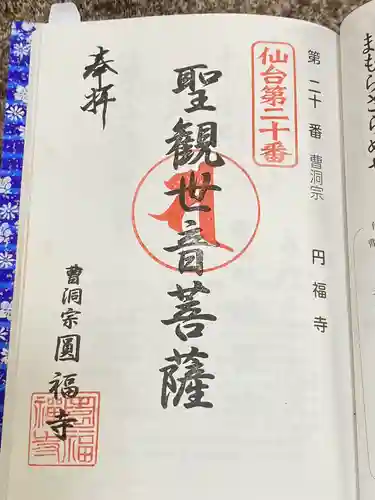 第二十番 曹洞宗 円福寺
仙台第二十番
奉拝
聖觀世音菩薩
曹洞宗圓福寺